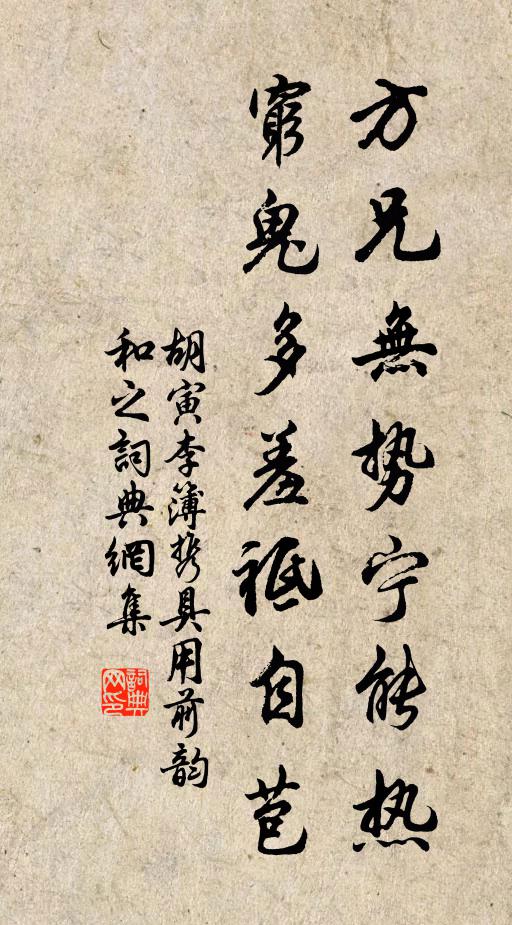 方兄無势宁能热
窮鬼多羞祗自苞
胡寅李簿携具用前韵
和之詞典網集
詞典网印